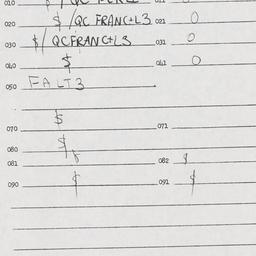 010 011
020 $/QC FRANC+L3 021 0
030 $/QCFRANC+L3 031 0
040 $ 041 0
050 FALT3
$
070 071
080 $
081 082 $
090 $ 091 $